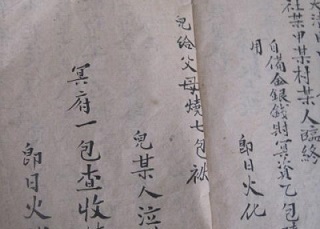 社某甲某村某人臨終
自備金銀錢財冥資乙包
用
即日火化
兒給父母燒七包袱
兒某人泣
冥府一包查收
即日火